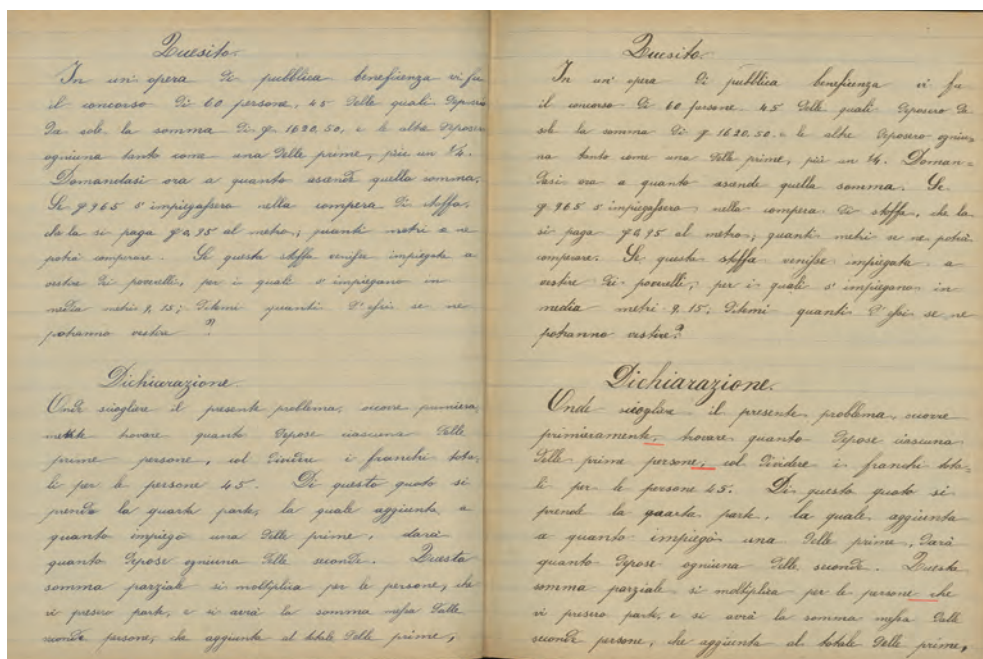 Quesito.
In un' opera di pubblica beneficenza vi fu
il concorso di 60 persone, 45 delle quali deposero
da sole la somma di fr. 1620.50, e le altre deposero
ogniuna tanto come una delle prime, più un 1/4.
Domandasi ora a quanto ascende quella somma.
Se fr 965 s' impiegassero nella compera di stoffa,
che la si paga fr 0,95 al metro; quanti metri se ne
potrà comperare. Se questa stoffa venisse impiegata a
vestire dei poverelli, per i quali s' impiegano in
media metri 9,15; ditemi quanti d' essi se ne
potranno vestire?
Dichiarazione.
Onde sciogliere il presente problema, occorre primiera-
mente trovare quanto depose ciascuna delle
prime persone, col dividere i franchi tota-
li per le persone 45. Di questo quoto si
prende la quarta parte, la quale aggiunta a
quanto impiegò una delle prime, darà
quanto depose ogniuna delle seconde. Questa
somma parziale si moltiplica per le persone, che
vi presero parte, e si avrà la somma messa dalle
seconde persone, che aggiunta al totale delle prime,
Quesito.
In un' opera di pubblica beneficenza vi fu
il concorso di 60 persone. 45 delle quali deposero da
sole la somma di fr 1620.50. e le altre deposero ogniu-
na tanto come una delle prime, più un 1/4. Doman-
dasi ora a quanto ascende quella somma. Se
fr. 965 s' impiegassero nella compera di stoffa, che la
si paga fr 0,95 al metro; quanti metri se ne potrà
comperare. Se questa stoffa venisse impiegata a
vestire dei poverelli, per i quali s' impiegano in
media metri 9.15; ditemi quanti d' essi se ne
potranno vestire?
Dichiarazione.
Onde sciogliere il presente problema, occorre
primieramente, trovare quanto depose ciascuna
delle prime persone, col dividere i franchi tota-
li per le persone 45. Di questo quoto si
prende la quarta parte, la quale, aggiunta
a quanto impiegò una delle prime, darà
quanto depose ogniuna delle seconde. Questa
somma parziale si moltiplica per le persone che
vi presero parte, e si avrà la somma messa dalle
seconde persone, che aggiunta al totale delle prime,